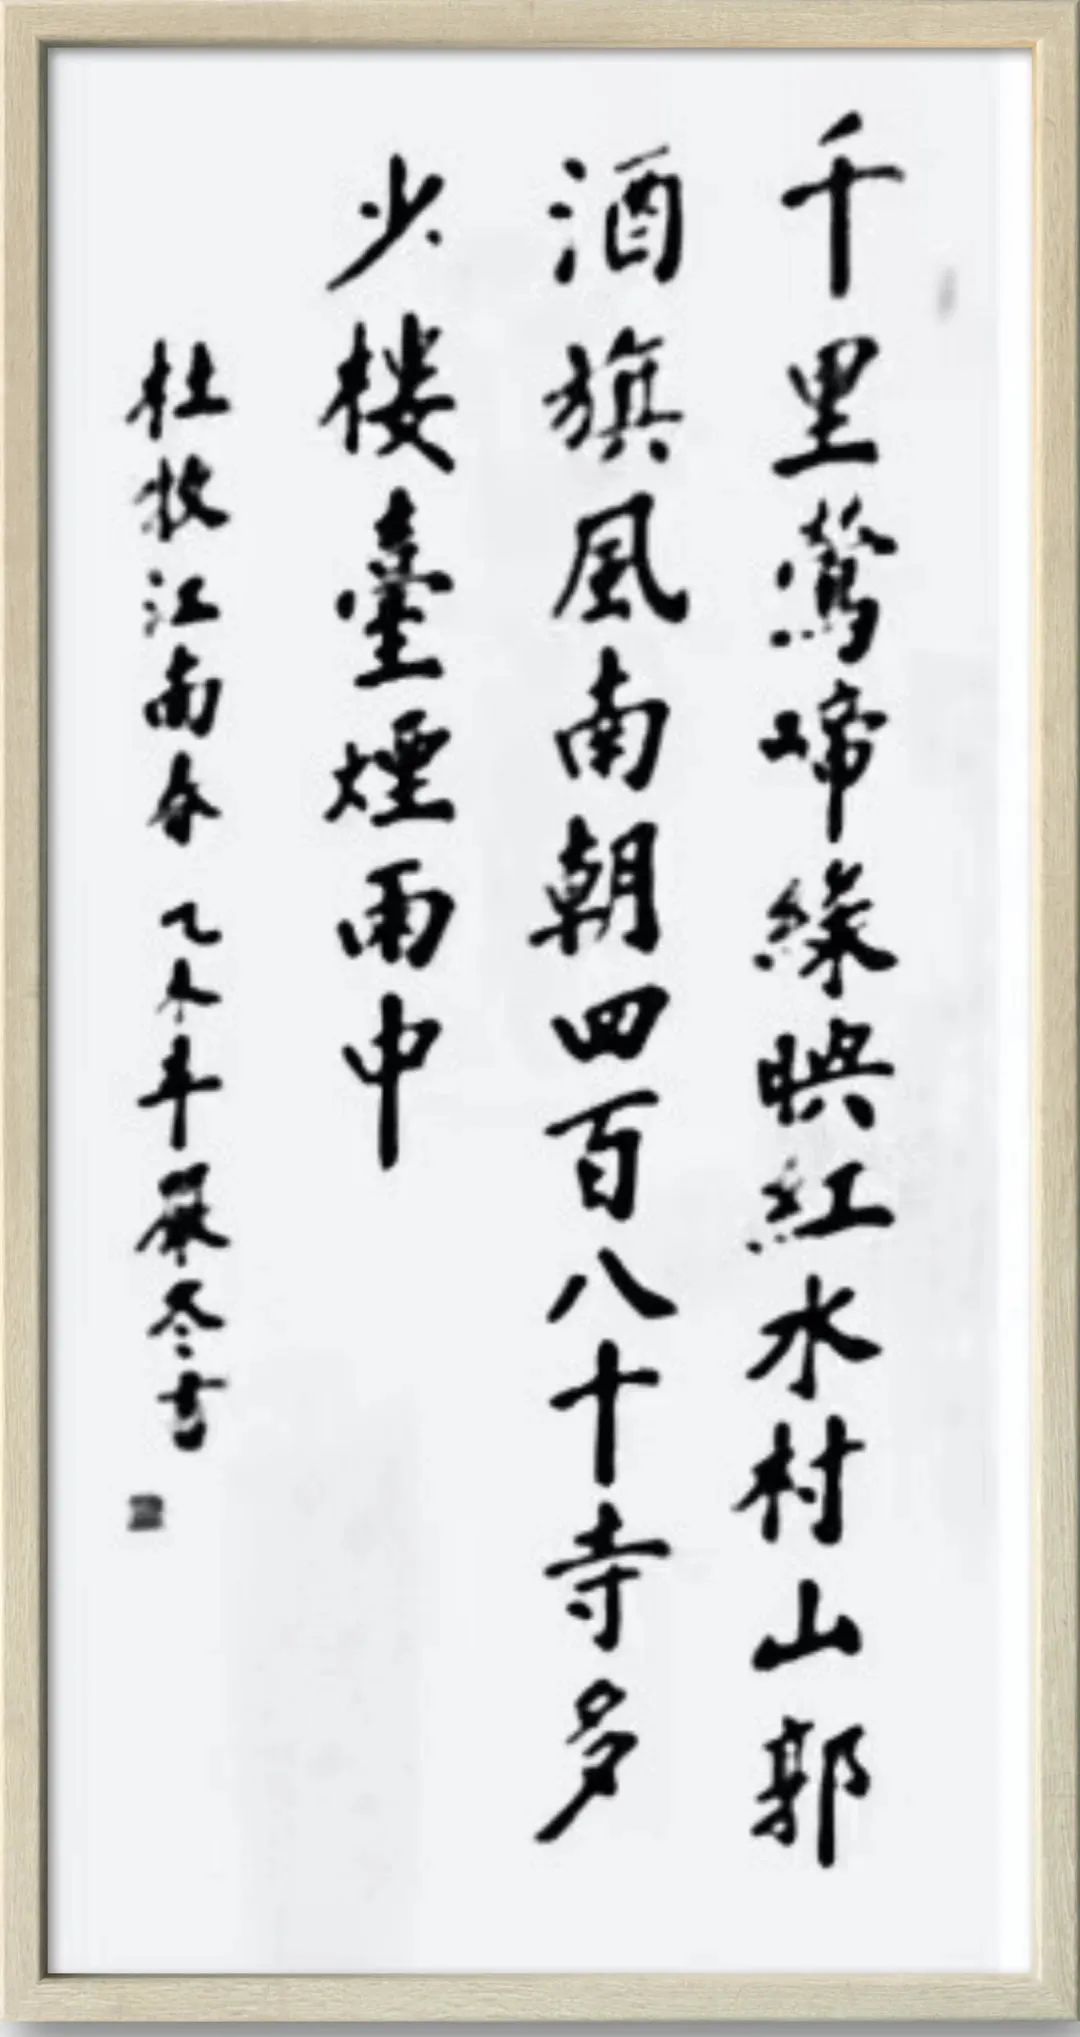 千里鶯啼綠映紅水村山郭
酒旗風南朝四百八十寺多
少楼臺煙雨中
杜牧江南春 乙未年冬書